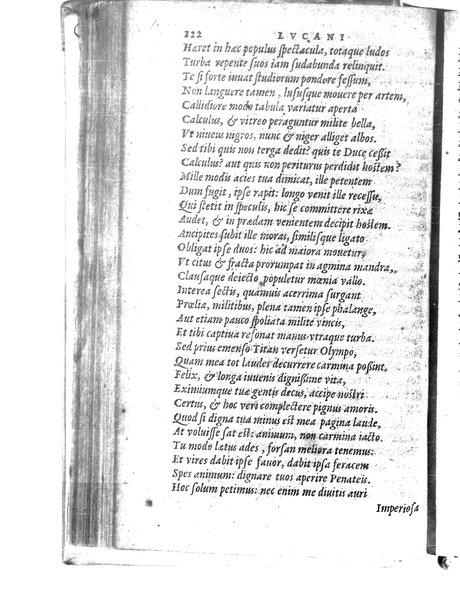 122 LVCANI
Hæret in hæc populus spectacula, totaque ludos
Turba repente suos iam sudabunda relinquit.
Te si forte iuuat studiorum pondere fessum,
Non languere tamen, lususque mouere per artem,
Callidiore modo tabula variatur aperta
Calculus, & vitreo peraguntur milite bella,
Vt niueus nigros, nunc & niger alliget albos.
Sed tibi quis non terga dedit? quis te Duce cessit
Calculus? aut quis non periturus perdidit hostem?
Mille modis acies tua dimicat, ille petentem
Dum fugit, ipse rapit: longo venit ille recessu,
Qui stetit in speculis, hic se committere rixæ
Audet, & in prædam venientem decipit hostem.
Ancipites subit ille moras, similisque ligato
Obligat ipse duos: hic ad maiora mouetur,
Vt citus & fracta prorumpat in agmina mandra,
Clausaque deiecto populetur mœnia vallo.
Interea sectis, quamuis acerrima surgant
Prœlia, militibus, plena tamen ipse phalange,
Aut etiam pauco spoliata milite vincis,
Et tibi captiua resonat manus vtraque turba.
Sed prius emenso Titan versetur Olympo,
Quam mea tot laudes decurrere carmina possint.
Felix, & longa iuuenis dignissime vita,
Eximiumque tuæ gentis decus, accipe nostri
Certus, & hoc veri complectere pignus amoris.
Quod si digna tua minus est mea pagina laude,
At voluisse sat est: animum, non carmina iacto.
Tu modo lætus ades, forsan meliora tenemus:
Et vires dabit ipse fauor, dabit ipsa feracem
Spes animum: dignare tuos aperire Penateis.
Hoc solum petimus: nec enim me diuitis auri
Imperiosa